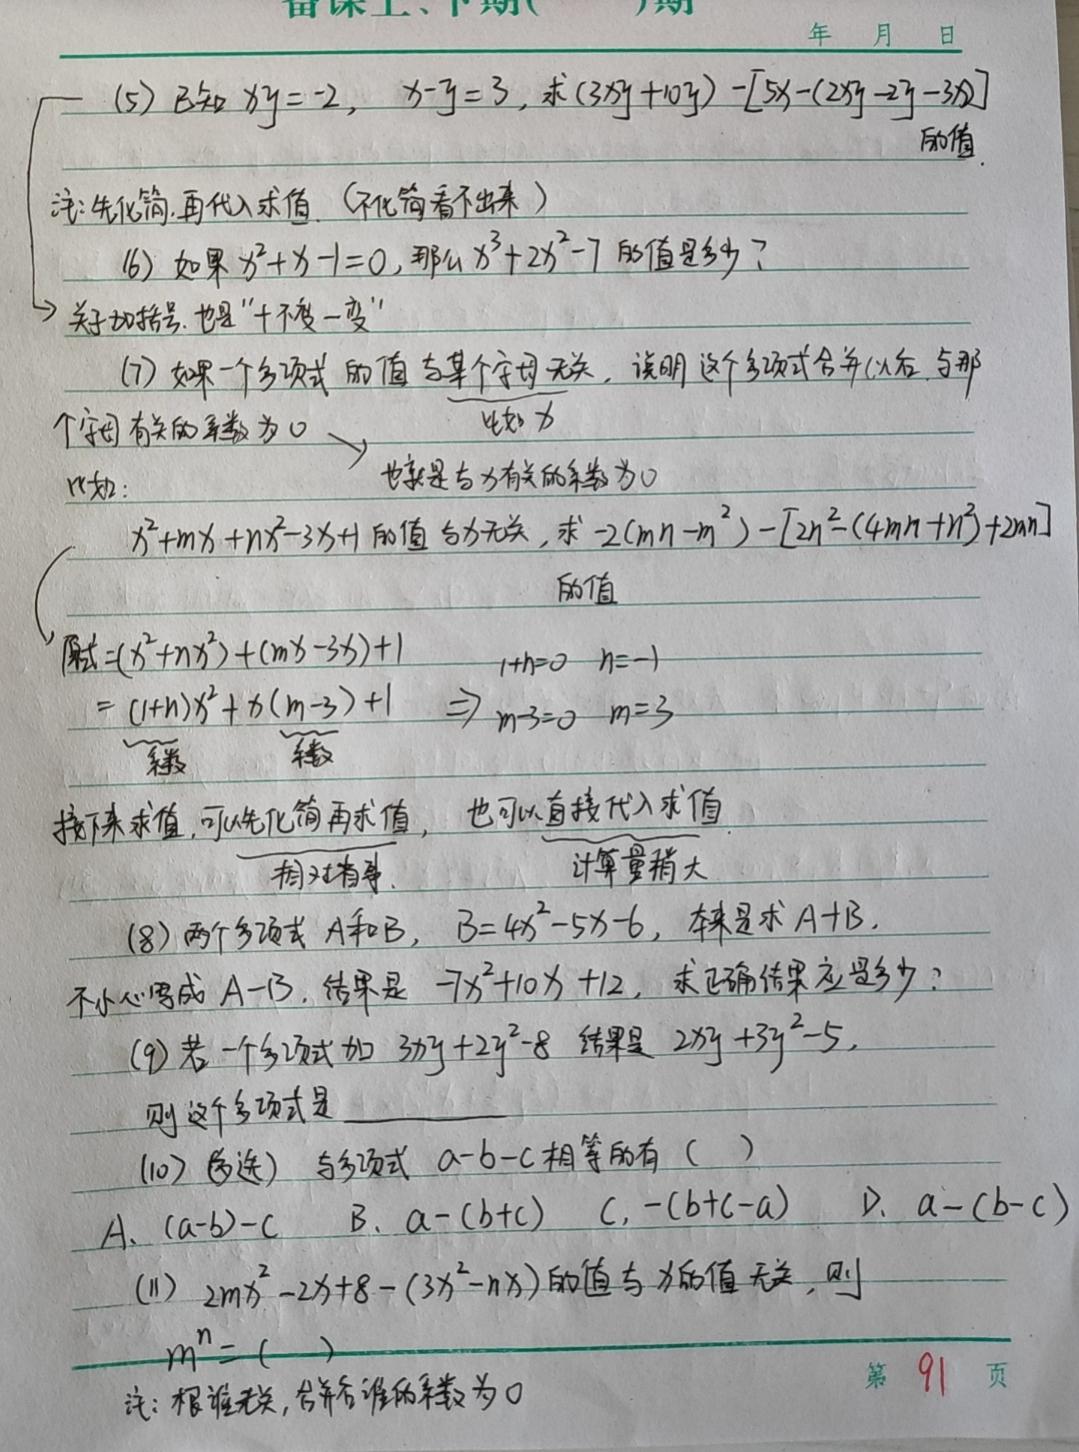 备课上、下期( )期
年 月 日
(5) 已知 xy=-2, x-y=3, 求(3xy+10y)-[5x-(2xy-2y-3x)]
的值.
注:先化简.再代入求值.(不化简看不出来)
(6) 如果 x²+x-1=0, 那么 x³+2x²-7 的值是多少?
关于加括号.也是"+不变-变"
(7) 如果一个多项式 的值与某个字母无关, 说明这个多项式合并以后.与那
比如 x
个字母有关的系数为0
也就是与x有关的系数为0
比如:
x²+mx+nx²-3x+1 的值与x无关, 求 -2(mn-m²)-[2n²-(4mn+n²)+2mn]
的值
原式=(x²+nx²)+(mx-3x)+1 1+n=0 n=-1
=(1+n)x²+x(m-3)+1 ⇒ m-3=0 m=3
系数 系数
接下来求值,可以先化简再求值, 也可以直接代入求值.
相对省事. 计算量稍大
(8) 两个多项式 A和B, B=4x²-5x-6, 本来是求 A+B.
不小心写成 A-B, 结果是 -7x²+10x+12, 求正确结果应是多少?
(9) 若一个多项式加 3xy+2y²-8 结果是 2xy+3y²-5,
则这个多项式是
(10) (多选) 与多项式 a-b-c 相等的有 ( )
A、(a-b)-c B、a-(b+c) C,-(b+c-a) D、a-(b-c)
(11) 2mx²-2x+8-(3x²-nx) 的值与x的值无关, 则
mⁿ=( )
第 91 页
注: 跟谁无关,合并后谁的系数为0